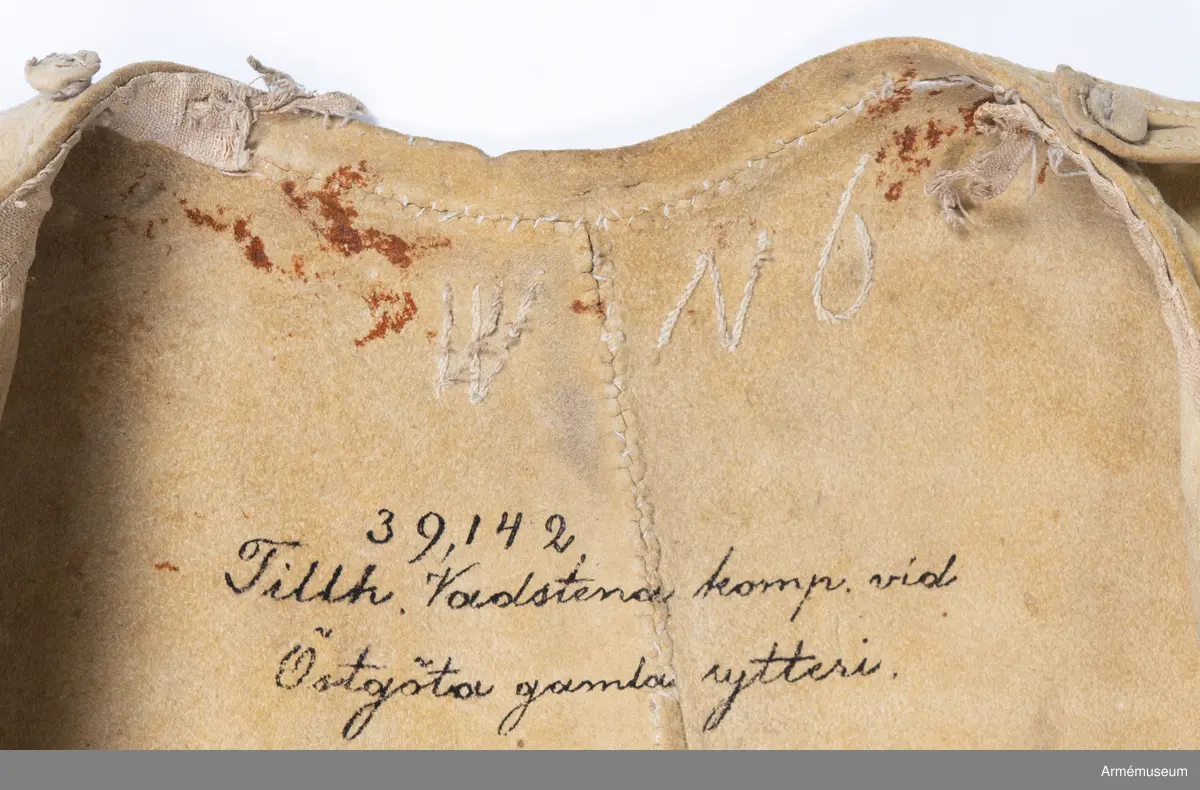 W N 6
39,142.
Tillh. Vadstena komp. vid
Östgöta gamla rytteri.
Armémuseum